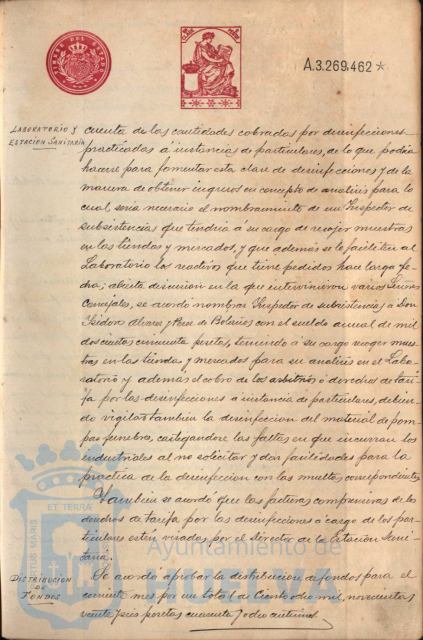 TIMBRE DEL ESTADO
A.3.269.462 *
LABORATORIO Y
ESTACION SANITARIA
cuenta de las cantidades cobradas por desinfecciones
practicadas á instancias de particulares, de lo que podria
hacerse para fomentar esta clase de desinfecciones y de la
manera de obtener ingresos en concepto de analisis para lo
cual seria necesario el nombramiento de un Inspector de
subsistencias que tendria á su cargo de recojer muestras
en las tiendas y mercados, y que además se le faciliten al
Laboratorio los reactivos que tiene pedidos hace larga fe-
cha; abierta discusion en la que intervinieron varios Señores
Concejales, se acordó nombrar Inspector de subsistencias a Don
Isidoro Alvarez y Perez de Bolaños con el sueldo anual de mil
doscientas cincuenta pesetas, teniendo á su cargo recoger mues-
tras en las tiendas y mercados para su analisis en el Labo-
ratorio y además el cobro de los arbitrios ó derechos de tari-
fa por las desinfecciones a instancia de particulares, debien-
do vigilar tambien la desinfeccion del material de pom-
pas funebres, castigandose las faltas en que incurran los
industriales al no solicitar y dar facilidades para la
practica de la desinfeccion con las multas correspondientes.
Tambien se acordó que las facturas comprensivas de los
derechos de tarifa por las desinfecciones á cargo de los par-
ticulares esten visadas por el Director de la Estacion Sani-
taria.
DISTRIBUCION
DE
FONDOS
Se acordó aprobar la distribucion de fondos para el
corriente mes por un total de Ciento ocho mil, novecientas
veinte y seis pesetas cuarenta y ocho centimos.
ET TERRA
PORTUS MARIS
Ayuntamiento de
HUELVA